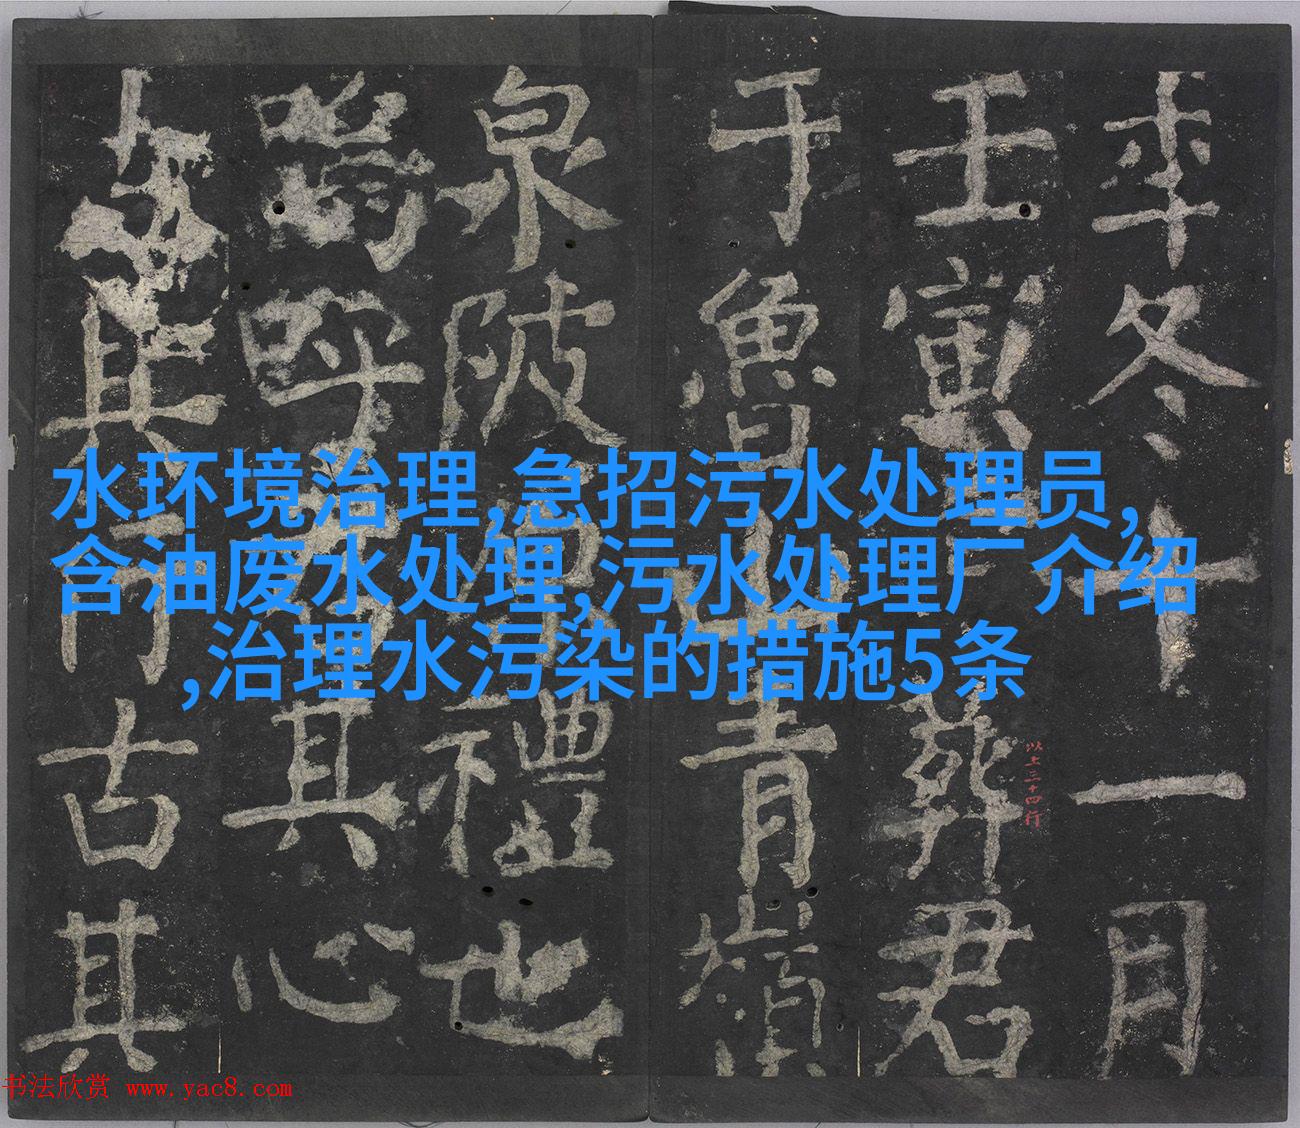 年冬十一月
壬寅葬君
于魯山青嶺
泉陂原禮也
嗚呼君其心
其行古其
以上三十四行
水环境治理,急招污水处理员,
含油废水处理,污水处理厂介绍
,治理水污染的措施5条
书法欣赏 www.yac8.com